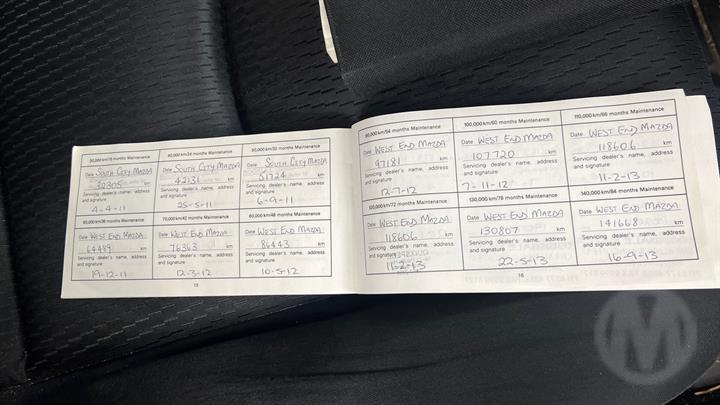 30,000 km/18 months Maintenance
Date SOUTH CITY MAZDA
32305 km
Servicing dealer's name, address
and signature
4-4-11
40,000 km/24 months Maintenance
Date SOUTH CITY MAZDA
42131 km
Servicing dealer's name, address
and signature
25-5-11
50,000 km/30 months Maintenance
Date SOUTH CITY MAZDA
51724 km
Servicing dealer's name, address
and signature
6-9-11
60,000 km/36 months Maintenance
Date WEST END MAZDA
64489 km
Servicing dealer's name, address
and signature
19-12-11
70,000 km/42 months Maintenance
Date WEST END MAZDA
76363 km
Servicing dealer's name, address
and signature
12-3-12
80,000 km/48 months Maintenance
Date WEST END MAZDA
86443 km
Servicing dealer's name, address
and signature
10-5-12
15
90,000 km/54 months Maintenance
Date WEST END MAZDA
97181 km
Servicing dealer's name, address
and signature
12-7-12
100,000 km/60 months Maintenance
Date WEST END MAZDA
107720 km
Servicing dealer's name, address
and signature
7-11-12
110,000 km/66 months Maintenance
Date WEST END MAZDA
118606 km
Servicing dealer's name, address
and signature
11-2-13
120,000 km/72 months Maintenance
Date WEST END MAZDA
118606 km
Servicing dealer's name, address
and signature
11-2-13
130,000 km/78 months Maintenance
Date WEST END MAZDA
130807 km
Servicing dealer's name, address
and signature
22-5-13
140,000 km/84 months Maintenance
Date WEST END MAZDA
141668 km
Servicing dealer's name, address
and signature
16-9-13
16
M